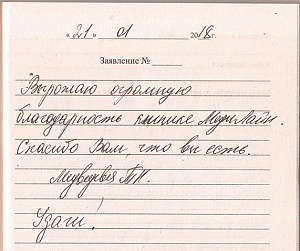 «21» 01 2018г.
Заявление №
Выражаю огромную
благодарность клинике МедиЛайн.
Спасибо Вам, что вы есть.
Медведева Т.Н.